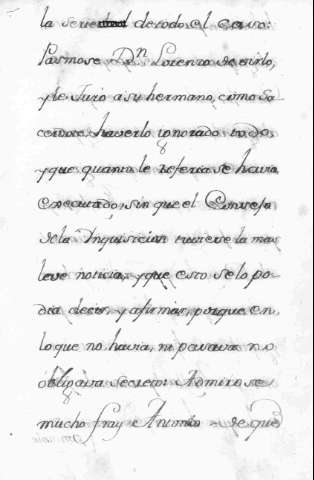 la serie de todo el caso:
Pasmose Dn Lorenzo de oirlo,
y le Juro a su hermano, como Sa
cerdote, haverlo ignorado todo,
y que quanto le referia se havia
executado, sin que el Consejo
de la Inquisicion tuviese la mas
leve noticia, y que esto se lo po-
dia decir, y afirmar, porque en
lo que no havia, ni pasava no
obligava secreto: Admirose
mucho fray Antonio de que